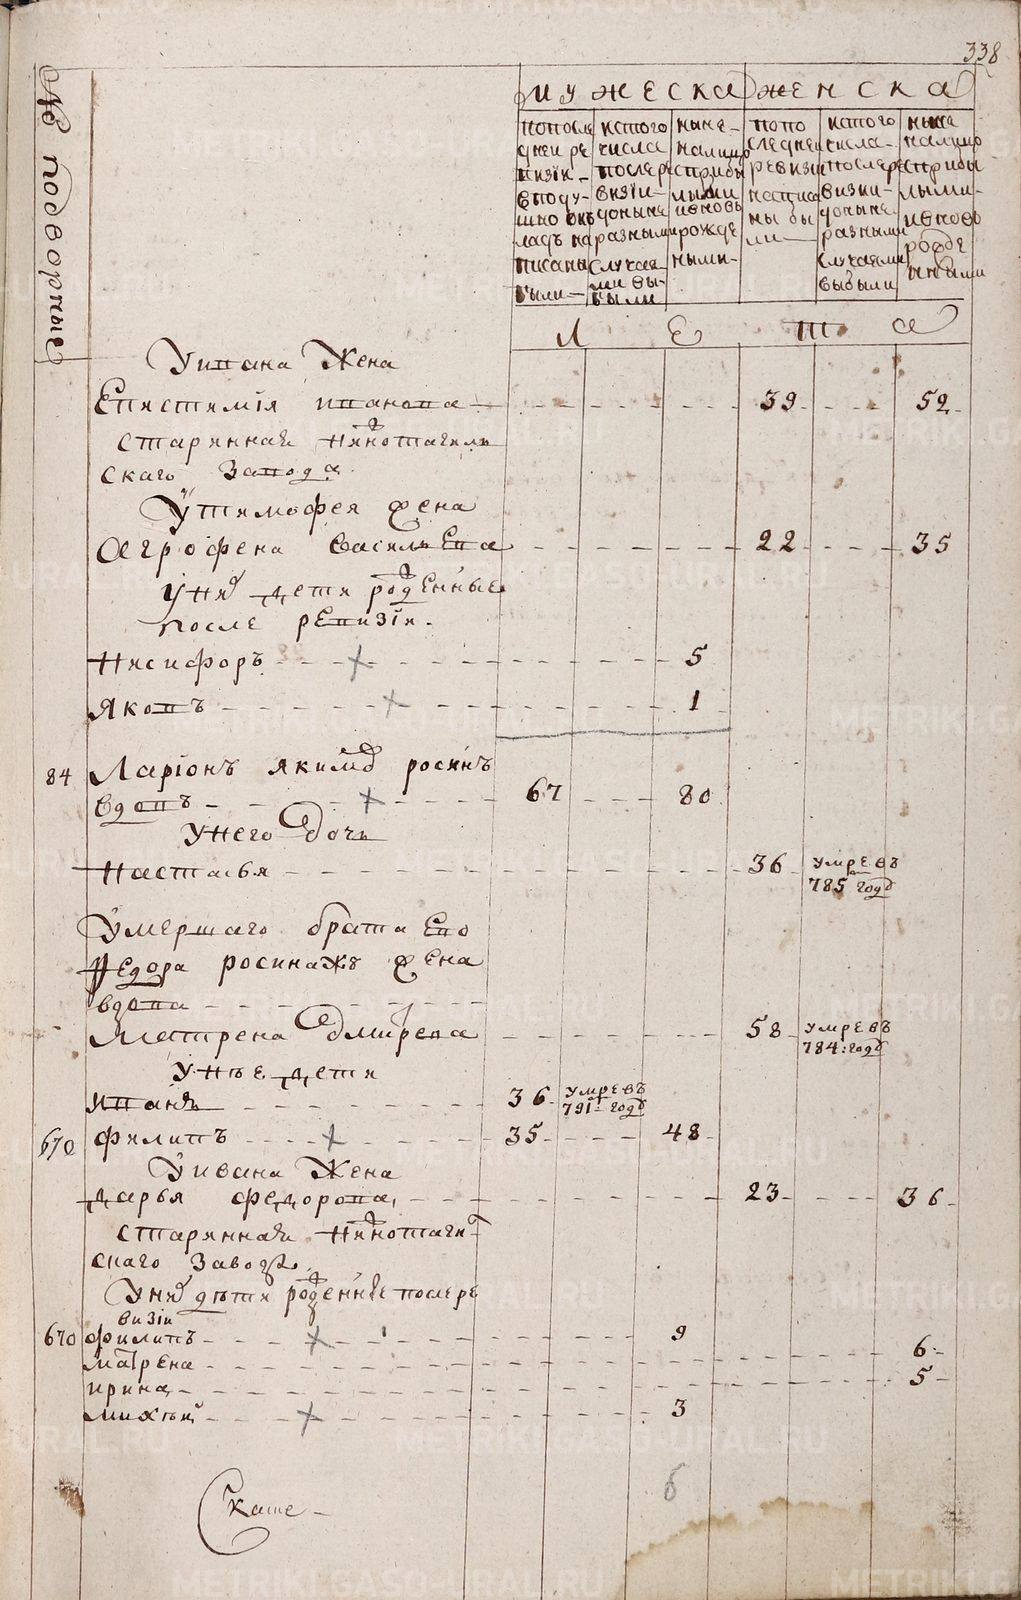 338
№ подворные
мужеска женска
попосле
дней ре
визiи
вподу-
шно окъ
ладъ на
писаны
были
истого
числа
послере
визiи
доныне
разными
случая-
ми вы-
были
ныне-
налицо
сприбы
лыми
ивновь
рожде
ными-
попо
следнеи
ревизи
написа
ны бы
ли
истого
числа-
послере
визии-
доныне
разными
случаями
выбыли
ныне
налицо
сприбы
лыми-
ивново
рожде
нными
лета
Уивана Жена
Епистимiя иванова 39 52
стариннаи нижнотагиль
скаго завода
Утимофея жена
Агрофена василиева 22 35
Унихъ дети рожденные
после ревизiи.
Нисифоръ 5
Яковъ 1
84 Ларiонъ якимовъ росинъ
вдовъ 67 80
Унего дочь
Настасья 36 умре въ
785 годъ
Умершаго брата Ево
Федора росинажъ жена
вдова
Матрена дмитрева 58 умре въ
784: годъ
Унъе дети
иванъ 36 умре въ
791- годъ
670 филипъ 35 48
Уивана Жена
дарья федорова 23 36
стариннаи нижнотаги
скаго завода
Унихъ дъти рожденные послере
визiи
670 филипъ 9
матрена 6
ирина 5
михъи 3
6
Скате-